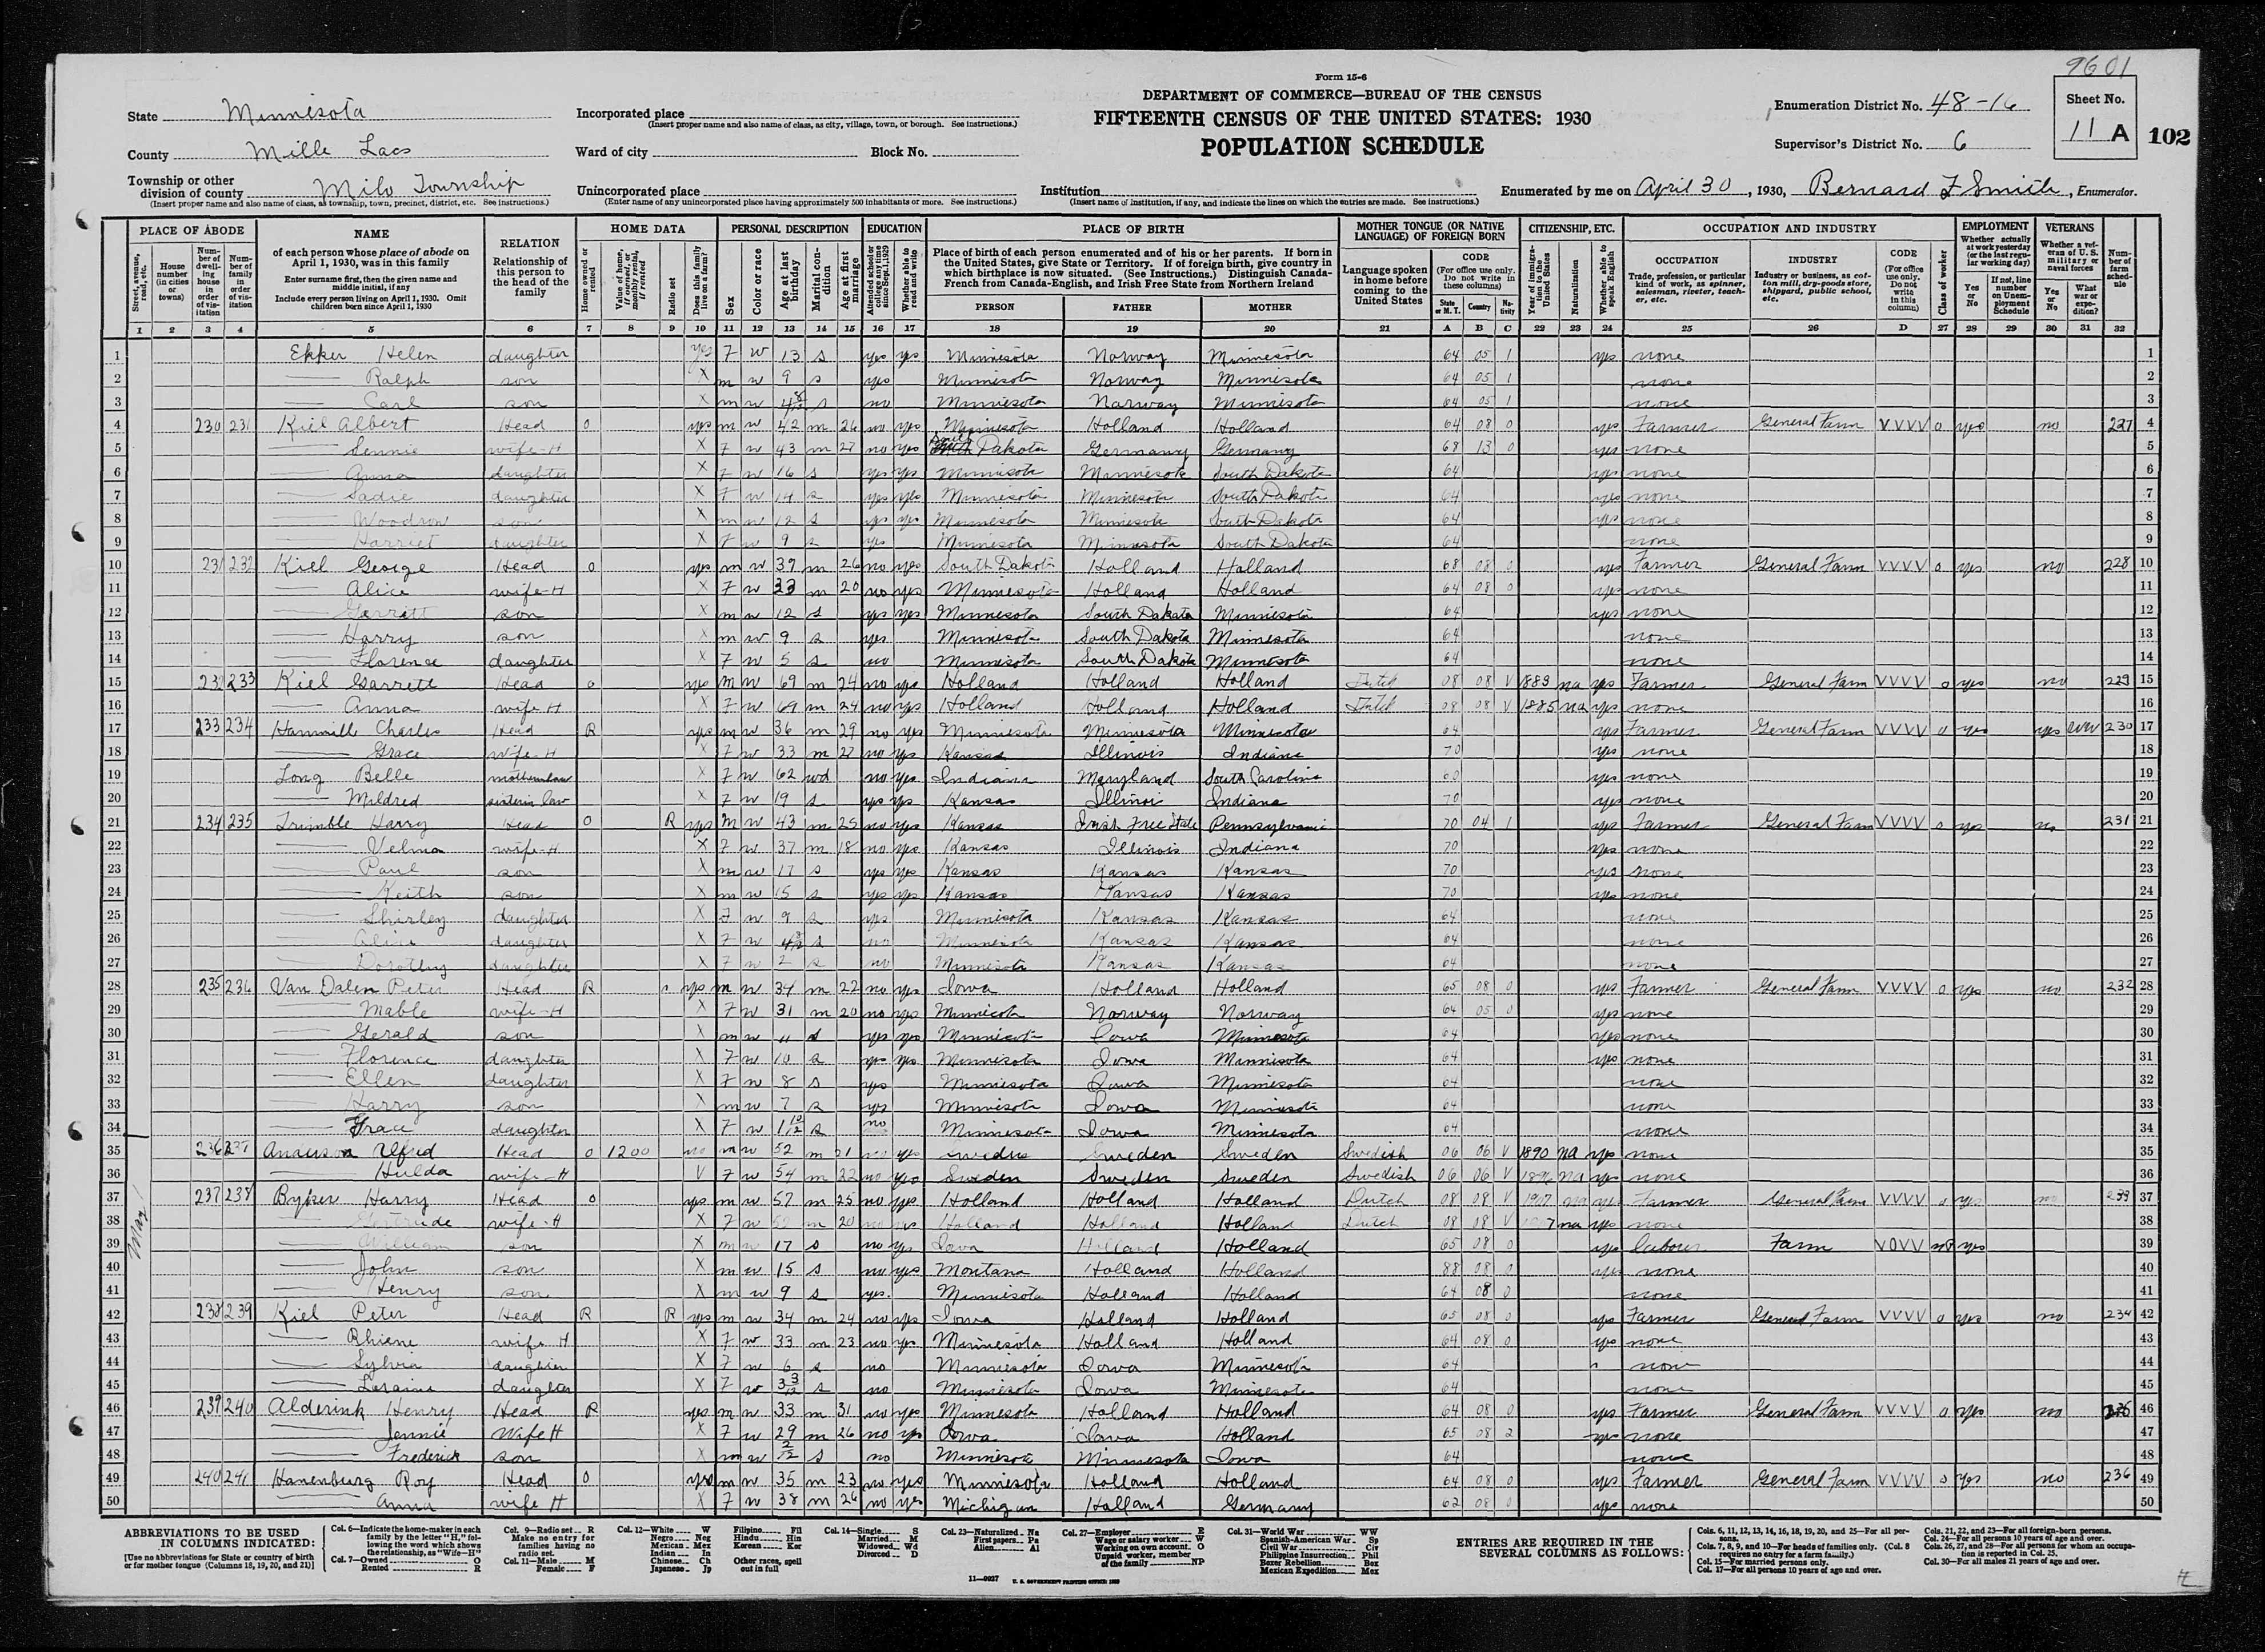 9601
Form 15-6
DEPARTMENT OF COMMERCE—BUREAU OF THE CENSUS
FIFTEENTH CENSUS OF THE UNITED STATES: 1930
POPULATION SCHEDULE
State Minnesota
County Mille Lacs
Township or other division of county Milo Township
(Insert proper name and also name of class, as township, town, precinct, district, etc. See instructions.)
Incorporated place
(Insert proper name and also name of class, as city, village, town, or borough. See instructions.)
Ward of city Block No.
Unincorporated place
(Enter name of any unincorporated place having approximately 500 inhabitants or more. See instructions.)
Institution
(Insert name of institution, if any, and indicate the lines on which the entries are made. See instructions.)
Enumeration District No. 48-16
Supervisor's District No. 6
Sheet No. 11 A
102
Enumerated by me on April 30, 1930, Bernard F Smith, Enumerator.
PLACE OF ABODE NAME RELATION HOME DATA PERSONAL DESCRIPTION EDUCATION PLACE OF BIRTH MOTHER TONGUE (OR NATIVE LANGUAGE) OF FOREIGN BORN CITIZENSHIP, ETC. OCCUPATION AND INDUSTRY EMPLOYMENT VETERANS
of each person whose place of abode on April 1, 1930, was in this family
Enter surname first, then the given name and middle initial, if any
Include every person living on April 1, 1930. Omit children born since April 1, 1930
Relationship of this person to the head of the family
Place of birth of each person enumerated and of his or her parents. If born in the United States, give State or Territory. If of foreign birth, give country in which birthplace is now situated. (See Instructions.) Distinguish Canada-French from Canada-English, and Irish Free State from Northern Ireland
PERSON FATHER MOTHER
Language spoken in home before coming to the United States
1 2 3 4 5 6 7 8 9 10 11 12 13 14 15 16 17 18 19 20 21 A B C 22 23 24 25 26 D 27 28 29 30 31 32
1 Ekker Helen daughter yes F w 13 s yes yes Minnesota Norway Minnesota 64 05 1 yes none 1
2 Ralph son X m w 9 s yes Minnesota Norway Minnesota 64 05 1 none 2
3 Carl son X m w 4 8/12 s no Minnesota Norway Minnesota 64 05 1 none 3
4 230 231 Kiel Albert Head O yes m w 42 m 26 no yes Minnesota Holland Holland 64 08 0 yes Farmer General Farm VVVV o yes no 227 4
5 wife-H X F w 43 m 27 no yes South Dakota Germany Germany 68 13 0 yes none 5
6 Anna daughter X F w 16 s yes yes Minnesota Minnesota South Dakota 64 yes none 6
7 Sadie daughter X F w 14 s yes yes Minnesota Minnesota South Dakota 64 yes none 7
8 Woodrow son X m w 12 s yes yes Minnesota Minnesota South Dakota 64 yes none 8
9 Harriet daughter X F w 9 s yes Minnesota Minnesota South Dakota 64 none 9
10 231 232 Kiel George Head O yes m w 39 m 26 no yes South Dakota Holland Holland 68 08 0 yes Farmer General Farm VVVV o yes no 228 10
11 Alice wife-H X F w 33 m 20 no yes Minnesota Holland Holland 64 08 0 yes none 11
12 Gerrett son X m w 12 s yes yes Minnesota South Dakota Minnesota 64 yes none 12
13 Harry son X m w 9 s yes Minnesota South Dakota Minnesota 64 none 13
14 Florence daughter X F w 5 s no Minnesota South Dakota Minnesota 64 none 14
15 232 233 Kiel Garrett Head O yes m w 69 m 24 no yes Holland Holland Holland Dutch 08 08 V 1883 na yes Farmer General Farm VVVV o yes no 229 15
16 Anna wife H X F w 69 m 24 no yes Holland Holland Holland Dutch 08 08 V 1885 na yes none 16
17 233 234 Hammille Charles Head R yes m w 36 m 29 no yes Minnesota Minnesota Minnesota 64 yes Farmer General Farm VVVV o yes yes WW 230 17
18 Grace wife-H X F w 33 m 27 no yes Kansas Illinois Indiana 70 yes none 18
19 Long Belle motherinlaw X F w 62 wd no yes Indiana Maryland South Carolina 60 yes none 19
20 Mildred sister in law X F w 19 s yes yes Kansas Illinois Indiana 70 yes none 20
21 234 235 Trimble Harry Head O R yes m w 43 m 25 no yes Kansas Irish Free State Pennsylvania 70 04 1 yes Farmer General Farm VVVV o yes no 231 21
22 Velma wife-H X F w 37 m 18 no yes Kansas Illinois Indiana 70 yes none 22
23 Paul son X m w 17 s yes yes Kansas Kansas Kansas 70 yes none 23
24 Keith son X m w 15 s yes yes Kansas Kansas Kansas 70 yes none 24
25 Shirley daughter X F w 9 s yes Minnesota Kansas Kansas 64 none 25
26 daughter X F w s no Minnesota Kansas Kansas 64 none 26
27 Dorothy daughter X F w 2 s no Minnesota Kansas Kansas 64 none 27
28 235 236 Van Dalen Peter Head R r yes m w 34 m 22 no yes Iowa Holland Holland 65 08 0 yes Farmer General Farm VVVV o yes no 232 28
29 Mable wife-H X F w 31 m 20 no yes Minnesota Norway Norway 64 05 0 yes none 29
30 Gerald son X m w 11 s yes yes Minnesota Iowa Minnesota 64 yes none 30
31 Florence daughter X F w 10 s yes yes Minnesota Iowa Minnesota 64 yes none 31
32 Ellen daughter X F w 8 s yes Minnesota Iowa Minnesota 64 none 32
33 Harry son X m w 7 s yes Minnesota Iowa Minnesota 64 none 33
34 Grace daughter X F w 1 10/12 s no Minnesota Iowa Minnesota 64 none 34
35 236 237 Anderson Alfred Head O 1200 no m w 52 m 21 no yes Sweden Sweden Sweden Swedish 06 06 V 1890 na yes none 35
36 Hulda wife-H V F w 54 m 22 no yes Sweden Sweden Sweden Swedish 06 06 V na yes none 36
May 1
37 237 238 Byker Harry Head O yes m w 57 m 25 no yes Holland Holland Holland Dutch 08 08 V 1907 na yes Farmer General Farm VVVV o yes no 233 37
38 Gertrude wife-H X F w m 20 no yes Holland Holland Holland Dutch 08 08 V na yes none 38
39 William son X m w 17 s no yes Iowa Holland Holland 65 08 0 yes labour Farm VOVV NP yes 39
40 John son X m w 15 s no yes Montana Holland Holland 88 08 0 yes none 40
41 Henry son X m w 9 s yes Minnesota Holland Holland 64 08 0 none 41
42 238 239 Kiel Peter Head R R yes m w 34 m 24 no yes Iowa Holland Holland 65 08 0 yes Farmer General Farm VVVV o yes no 234 42
43 Rhiene wife H X F w 33 m 23 no yes Minnesota Holland Holland 64 08 0 yes none 43
44 Sylvia daughter X F w 6 s no Minnesota Iowa Minnesota 64 none 44
45 Loraine daughter X F w 3 3/12 s no Minnesota Iowa Minnesota 64 none 45
46 239 240 Alderink Henry Head R yes m w 33 m 31 no yes Minnesota Holland Holland 64 08 0 yes Farmer General Farm VVVV o yes no 235 46
47 Jennie Wife H X F w 29 m 26 no yes Iowa Iowa Holland 65 08 2 yes none 47
48 Frederick son X m w 2/12 s no Minnesota Minnesota Iowa 64 none 48
49 240 241 Hanenburg Roy Head O yes m w 35 m 23 no yes Minnesota Holland Holland 64 08 0 yes Farmer General Farm VVVV o yes no 236 49
50 Anna wife H X F w 38 m 26 no yes Michigan Holland Germany 62 08 0 yes none 50
ABBREVIATIONS TO BE USED IN COLUMNS INDICATED:
[Use no abbreviations for State or country of birth or for mother tongue (Columns 18, 19, 20, and 21)]
Col. 6—Indicate the home-maker in each family by the letter "H," following the word which shows the relationship, as "Wife—H"
Col. 7—Owned O
Rented R
Col. 9—Radio set R
Make no entry for families having no radio set.
Col. 11—Male M
Female F
Col. 12—White W
Negro Neg
Mexican Mex
Indian In
Chinese Ch
Japanese Jp
Filipino Fil
Hindu Hin
Korean Kor
Other races, spell out in full
Col. 14—Single S
Married M
Widowed Wd
Divorced D
Col. 23—Naturalized Na
First papers Pa
Alien Al
Col. 27—Employer E
Wage or salary worker W
Working on own account O
Unpaid worker, member of the family NP
Col. 31—World War WW
Spanish-American War Sp
Civil War Civ
Philippine Insurrection Phil
Boxer Rebellion Box
Mexican Expedition Mex
ENTRIES ARE REQUIRED IN THE SEVERAL COLUMNS AS FOLLOWS:
Cols. 6, 11, 12, 13, 14, 16, 18, 19, 20, and 25—For all persons.
Cols. 7, 8, 9, and 10—For heads of families only. (Col. 8 requires no entry for a farm family.)
Col. 15—For married persons only.
Col. 17—For all persons 10 years of age and over.
Cols. 21, 22, and 23—For all foreign-born persons.
Col. 24—For all persons 10 years of age and over.
Cols. 26, 27, and 28—For all persons for whom an occupation is reported in Col. 25.
Col. 30—For all males 21 years of age and over.
11—9927 U. S. GOVERNMENT PRINTING OFFICE